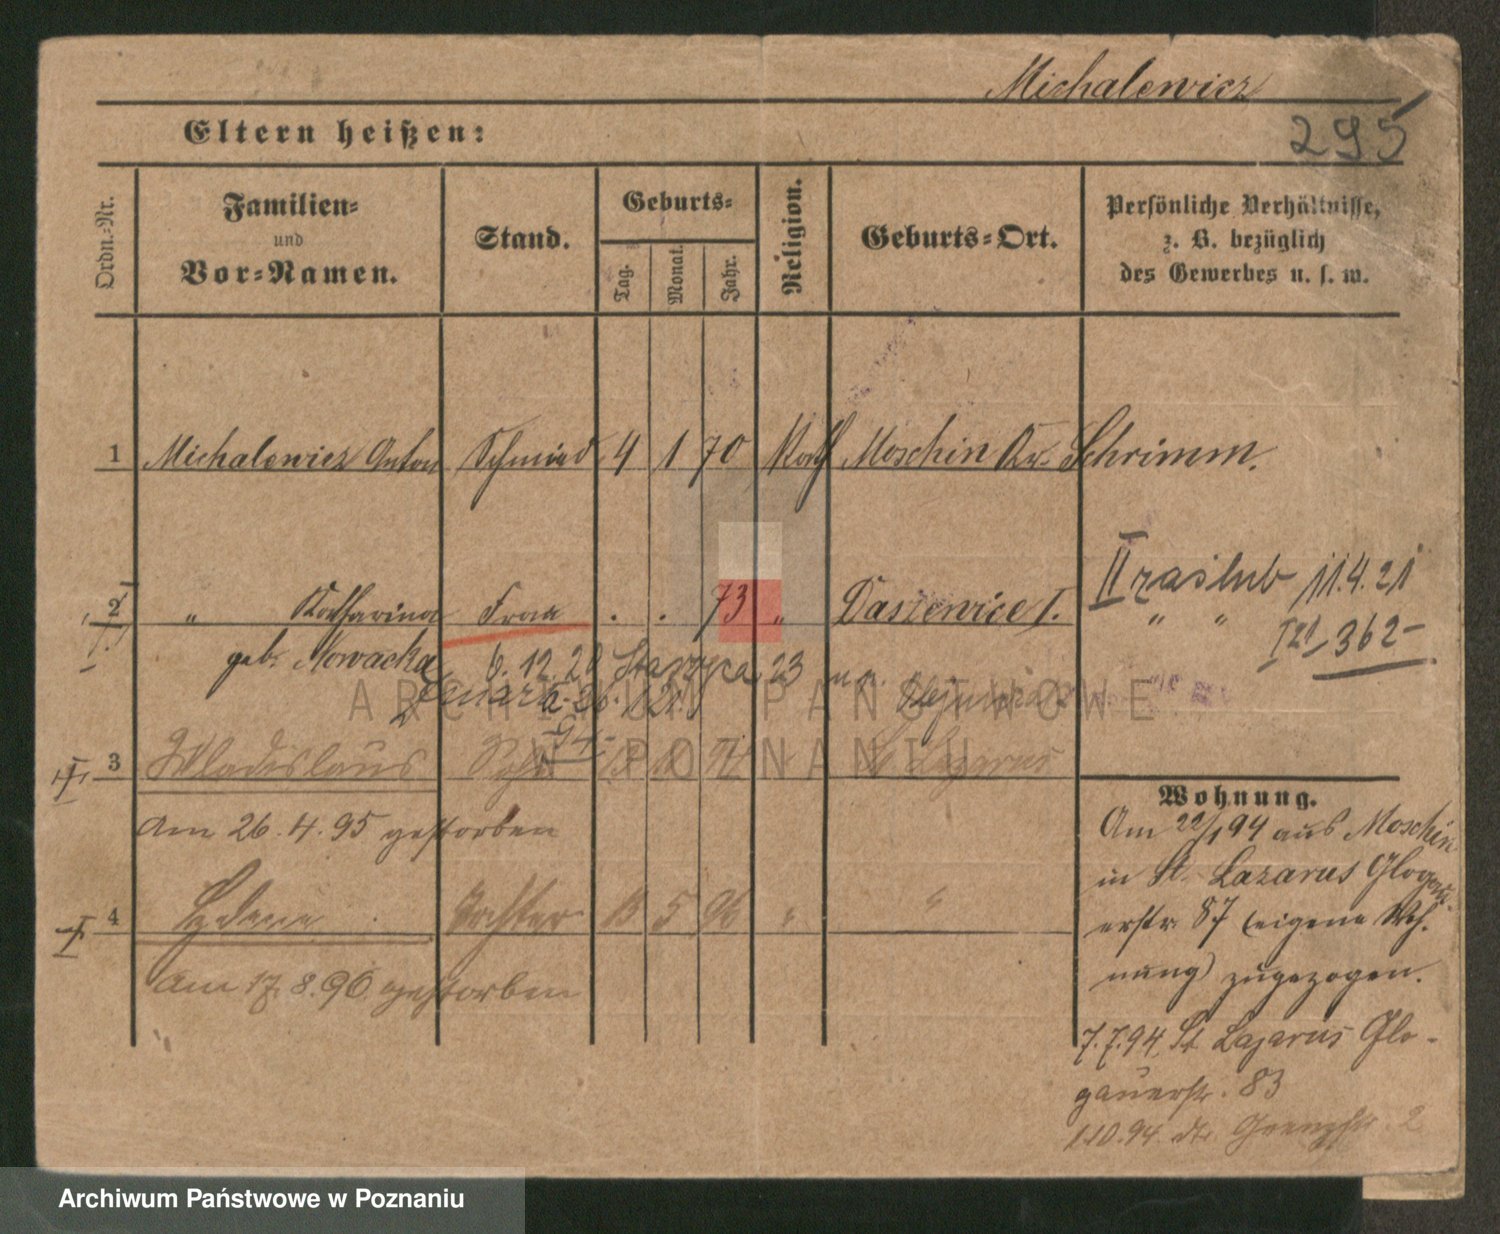 Michalewicz
295
Eltern heißen:
Ordn.-Nr.
Familien-
und
Vor-Namen.
Stand.
Geburts-
Tag.
Monat.
Jahr.
Religion.
Geburts-Ort.
Persönliche Verhältnisse,
z. B. bezüglich
des Gewerbes u. s. w.
1 Michalewicz Anton Schmied 4 1 70 Kath Moschin Kr. Schrimm.
2 " Katharina Frau . . 73 " Daszewice I.
geb. Nowacka
6.12.20 Starzyca 23
II zaślub 11.4.21
" "
362-
3 Wladislaus Sohn St. Lazarus
Am 26.4.95 gestorben
4 Helene Tochter 5 "
Am 17.8.96 gestorben
Wohnung.
Am 22/1 94 aus Moschin
in St. Lazarus Glogau-
erstr. 87 (eigene Woh-
nung) zugezogen.
7.7.94 St Lazarus Glo-
gauerstr. 83
1.10.94. 2
ARCHIWUM PAŃSTWOWE
W POZNANIU
Archiwum Państwowe w Poznaniu